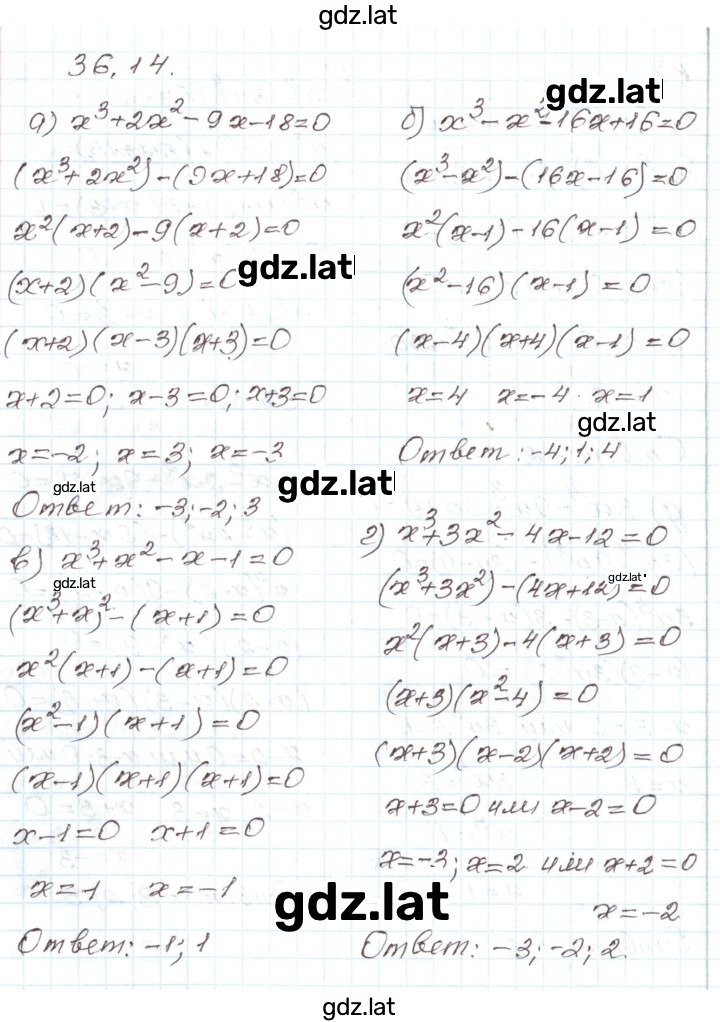 gdz.lat
36.14.
gdz.lat
а) x³+2x²-9x-18=0
(x³+2x²)-(9x+18)=0
x²(x+2)-9(x+2)=0
(x+2)(x²-9)=0
gdz.lat
(x+2)(x-3)(x+3)=0
x+2=0; x-3=0; x+3=0
x=-2; x=3; x=-3
gdz.lat
Ответ: -3; -2; 3
б) x³-x²-16x+16=0
(x³-x²)-(16x-16)=0
x²(x-1)-16(x-1)=0
(x²-16)(x-1)=0
(x-4)(x+4)(x-1)=0
x=4 x=-4. x=1
gdz.lat
Ответ: -4; 1; 4
gdz.lat
в) x³+x²-x-1=0
gdz.lat
(x³+x)²-(x+1)=0
x²(x+1)-(x+1)=0
(x²-1)(x+1)=0
(x-1)(x+1)(x+1)=0
x-1=0 x+1=0
x=1 x=-1
Ответ: -1; 1
г) x³+3x²-4x-12=0
gdz.lat
(x³+3x²)-(4x+12)=0
x²(x+3)-4(x+3)=0
(x+3)(x²-4)=0
(x+3)(x-2)(x+2)=0
x+3=0 или x-2=0
x=-3; x=2 или x+2=0
gdz.lat
x=-2
Ответ: -3; -2; 2.
gdz.lat